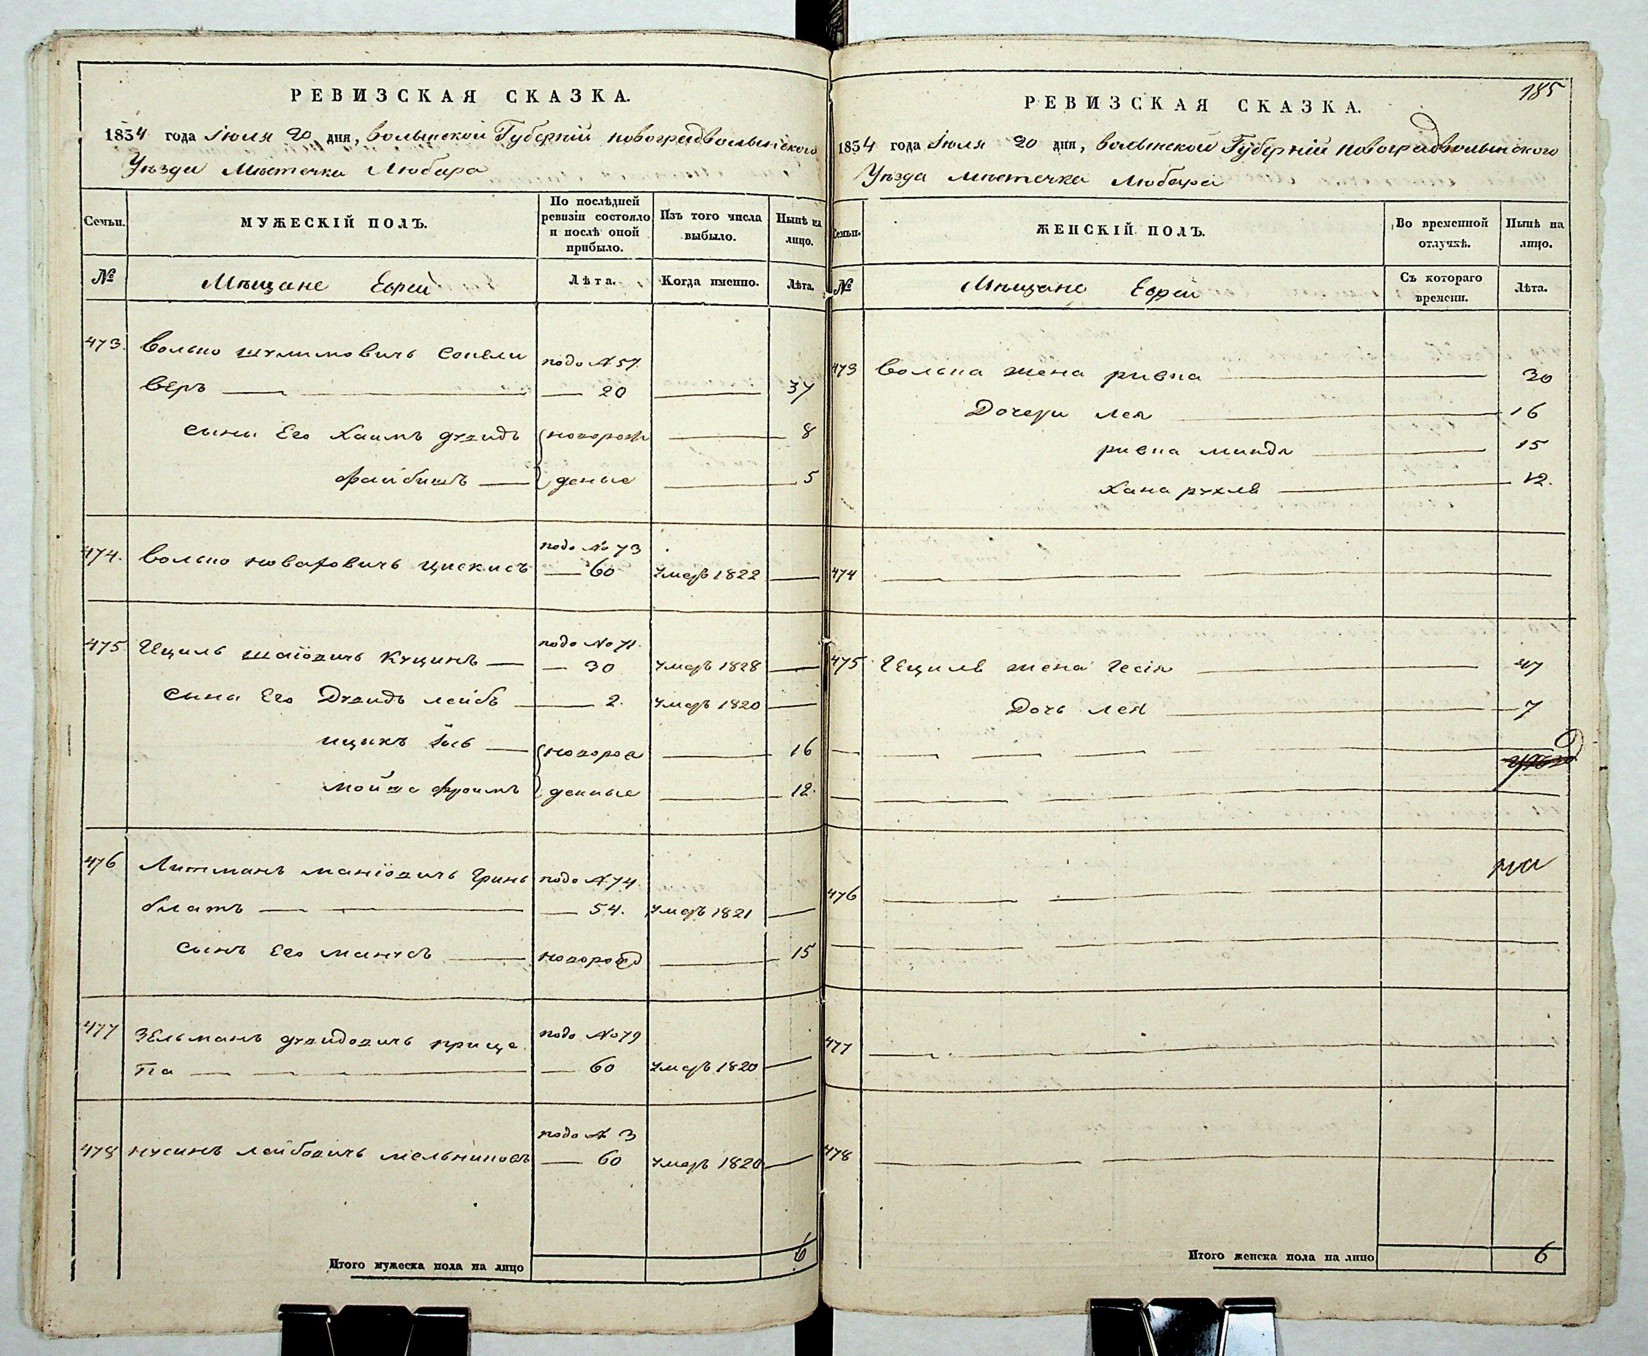 РЕВИЗСКАЯ СКАЗКА.
1834 года Іюля 20 дня, Волынской Губерніи Новоградволынского
Уѣзда Мѣстечка Любара
Семьи.
МУЖЕСКІЙ ПОЛЪ.
По послѣдней ревизіи состояло и послѣ оной прибыло.
Изъ того числа выбыло.
Нынѣ на лицо.
№
Мѣщане Евреи
Лѣта.
Когда именно.
Лѣта.
473. Волько Шулимовичь подъ № 57.
веръ 20 37
сыны Его Хаимъ Дувидъ новорож 8
Файбишъ денные 5
474. Волько подъ № 73
60 умеръ 1822
475 Ицикъ Куцинъ подъ № 71.
30 умеръ 1828
сыны Его Дувидъ Лейбъ 2. умеръ 1820
Ицикъ Іось новорож 16
Мойше Фроимъ денные 12.
476 Литманъ Манїовичь Грин подъ № 74.
блатъ 54. умеръ 1821
сынъ Его новорожд 15
477 Зельманъ Дувидовичь Прище подъ № 79
па 60 умеръ 1820
478 Нусинъ Лейбовичь Мельникосъ подъ № 3
60 умеръ 1820
Итого мужеска пола на лицо 6
185
РЕВИЗСКАЯ СКАЗКА.
1834 года Іюля 20 дня, Волынской Губерніи Новоградволынского
Уѣзда Мѣстечка Любара
Семьи.
ЖЕНСКІЙ ПОЛЪ.
Во временной отлучкѣ.
Нынѣ на лицо.
№
Мѣщане Евреи
Съ котораго времени.
Лѣта.
473 Волька жена Ривка 30
Дочери Лея 16
Ривка Минда 15
Хана Рухля 12.
474
475 жена Гесія 47
Дочь Лея 7
476
477
478
Итого женска пола на лицо 6